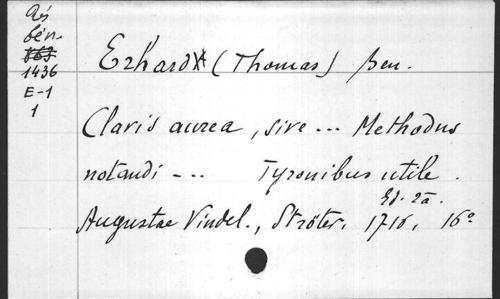 As
bén.
1436
E-1
1
Erhard (Thomas) sen.
Clavis aurea, sive ... Methodus
notandi ... Tyronibus utile.
Ed. 2a.
Augustae Vindel., Ströter, 1716, 16°